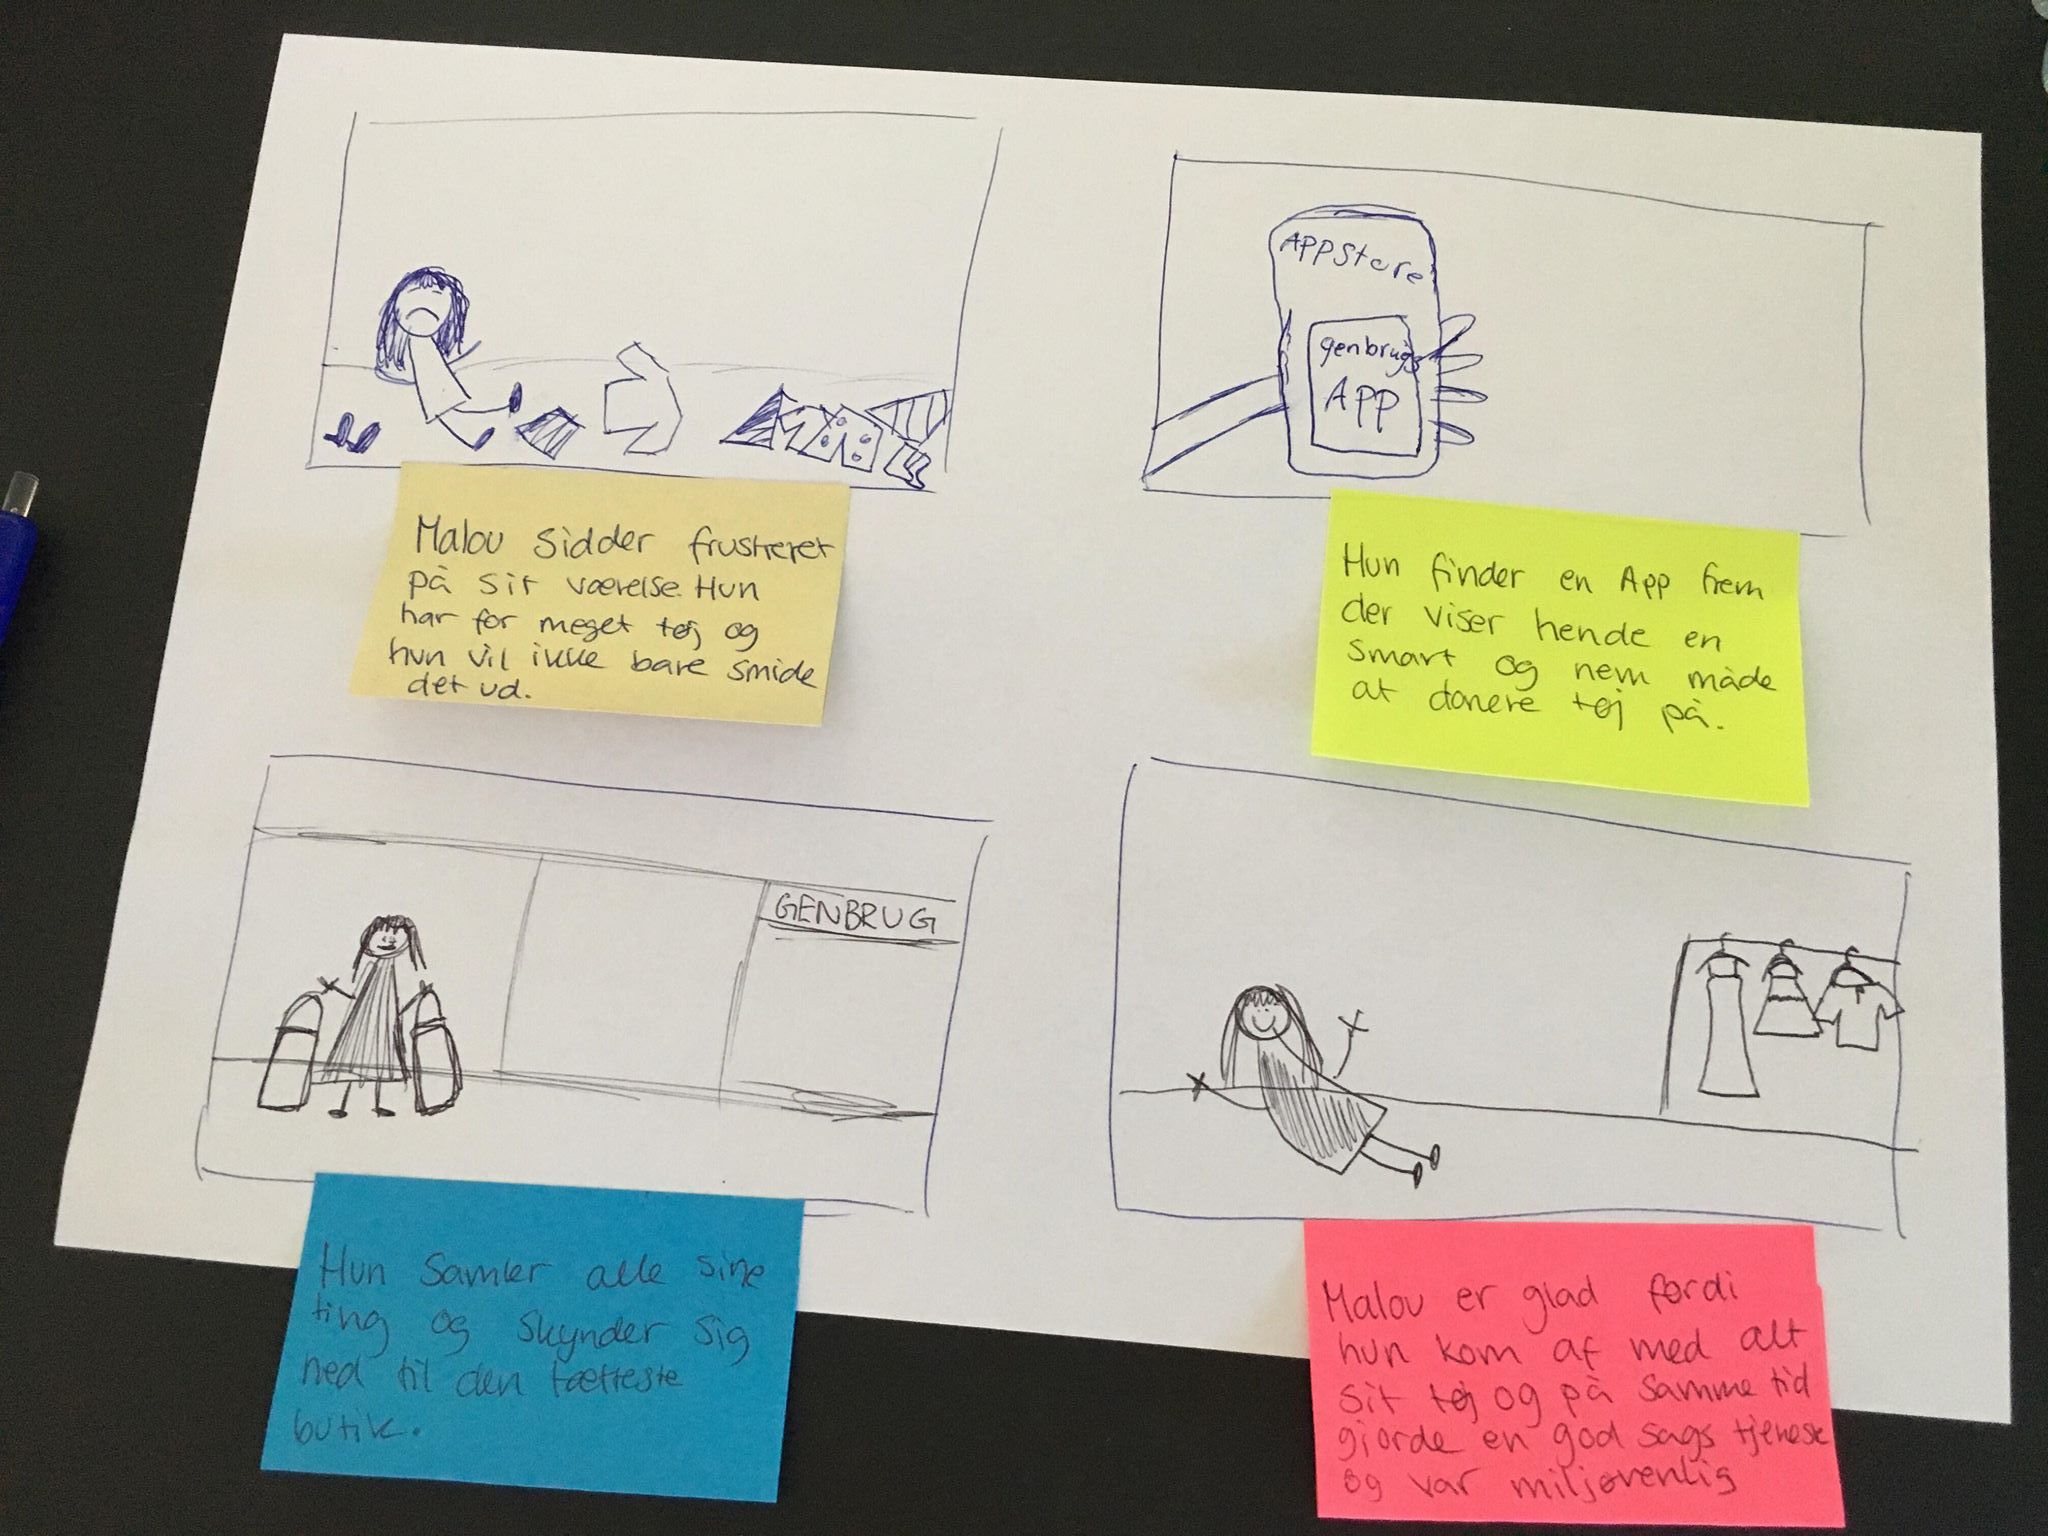 Malou sidder frustreret
på sit værelse. Hun
har for meget tøj og
hun vil ikke bare smide
det ud.
APPStore
genbrugs
APP
Hun finder en App frem
der viser hende en
smart og nem måde
at donere tøj på.
GENBRUG
Hun samler alle sine
ting og skynder sig
ned til den tætteste
butik.
Malou er glad fordi
hun kom af med alt
sit tøj og på samme tid
gjorde en god sags tjeneste
og var miljøvenlig